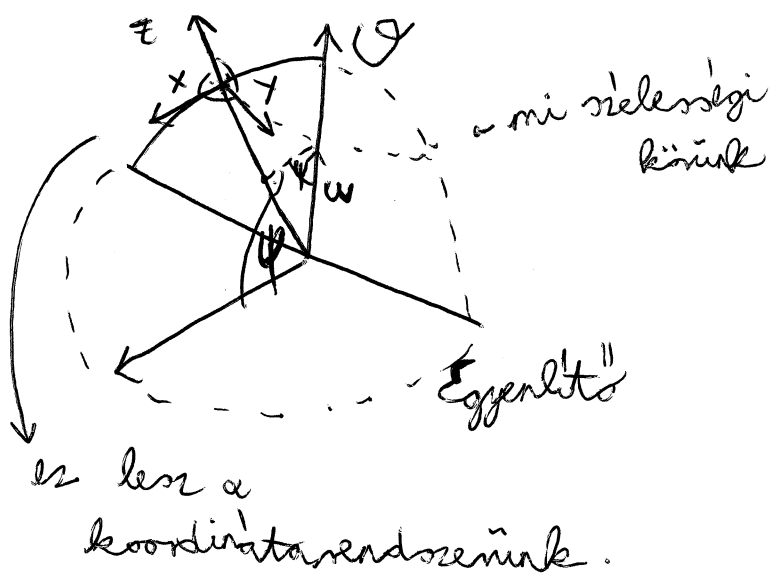 z
x
y
ψ
ω
φ
a mi szélességi
körünk
Egyenlítő
ez lesz a
koordinátarendszerünk.